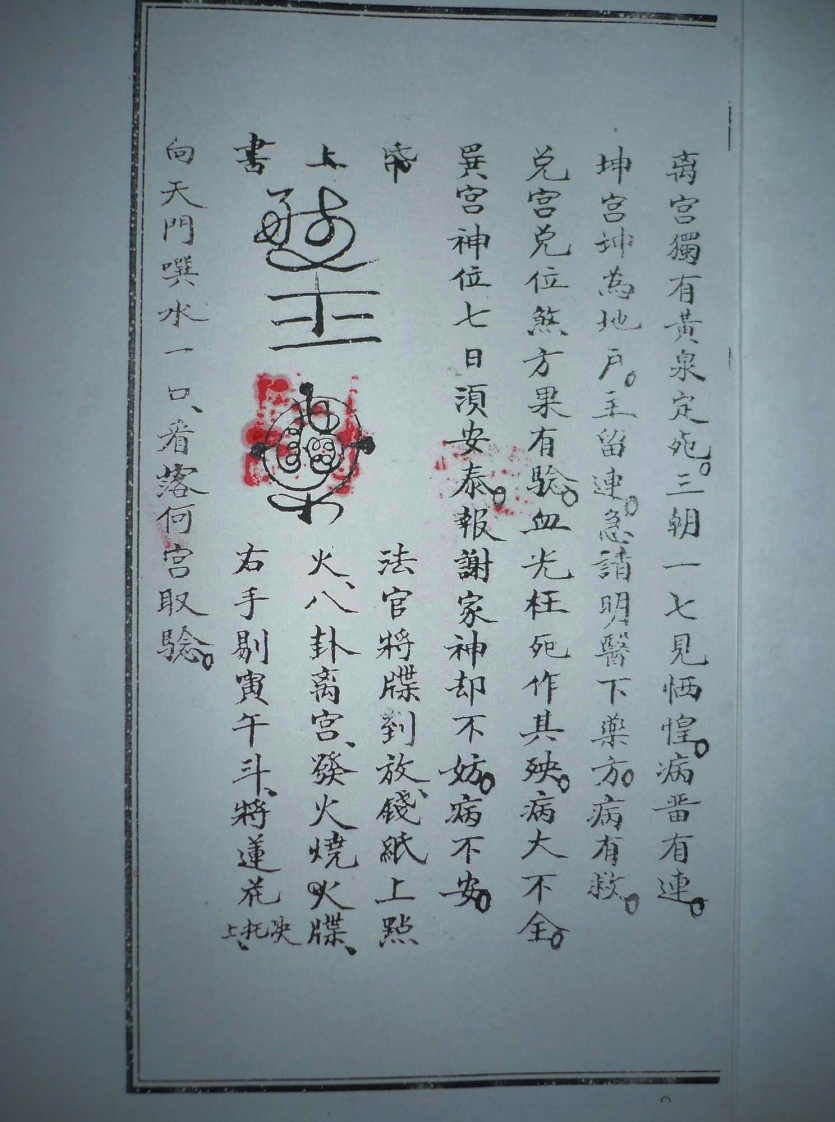 离宮獨有黃泉定死。三朝一七見恓惶。病畨有連。
坤宮坤為地户。主留連。急請明醫下藥方。病有救。
兑宮兑位煞方果有驗。血光枉死作其殃。病大不全。
巽宮神位七日須安泰。報謝家神却不妨。病不安。
帝 法官將牒到放、錢紙上㸃
上 火、八卦离宮、發火燒火牒、
書 右手剔寅午斗、將蓮花
上托決
向天門噀水一口、看落何宮取驗。